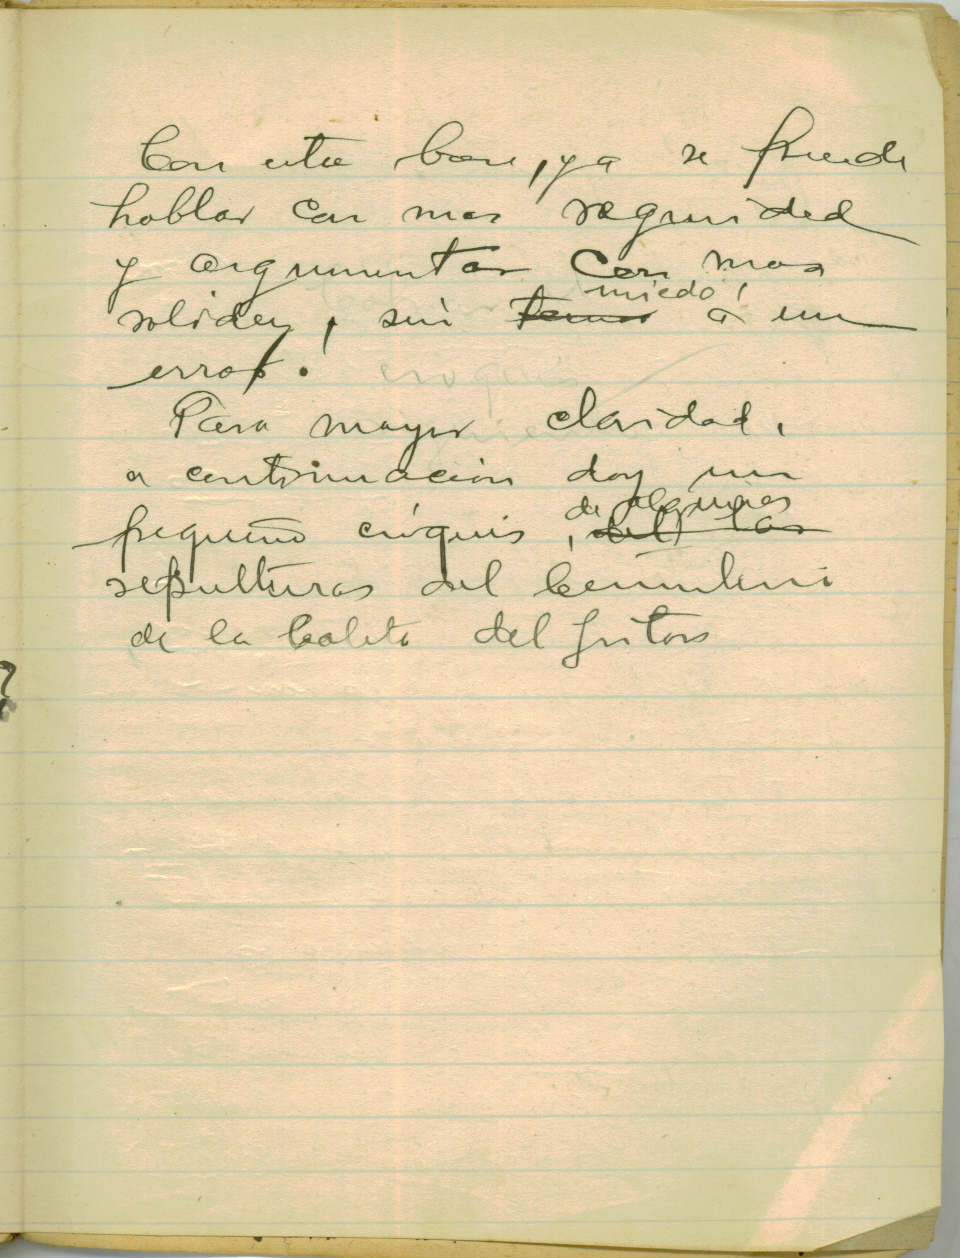 Con esta base, ya se puede
hablar con mas seguridad
y argumentar con mas
solidez, sin temor miedo! a un
error.!
Para mayor claridad,
a continuación doy un
pequeño cróquis, del las de algunas
sepulturas del Cementerio
de la Caleta del